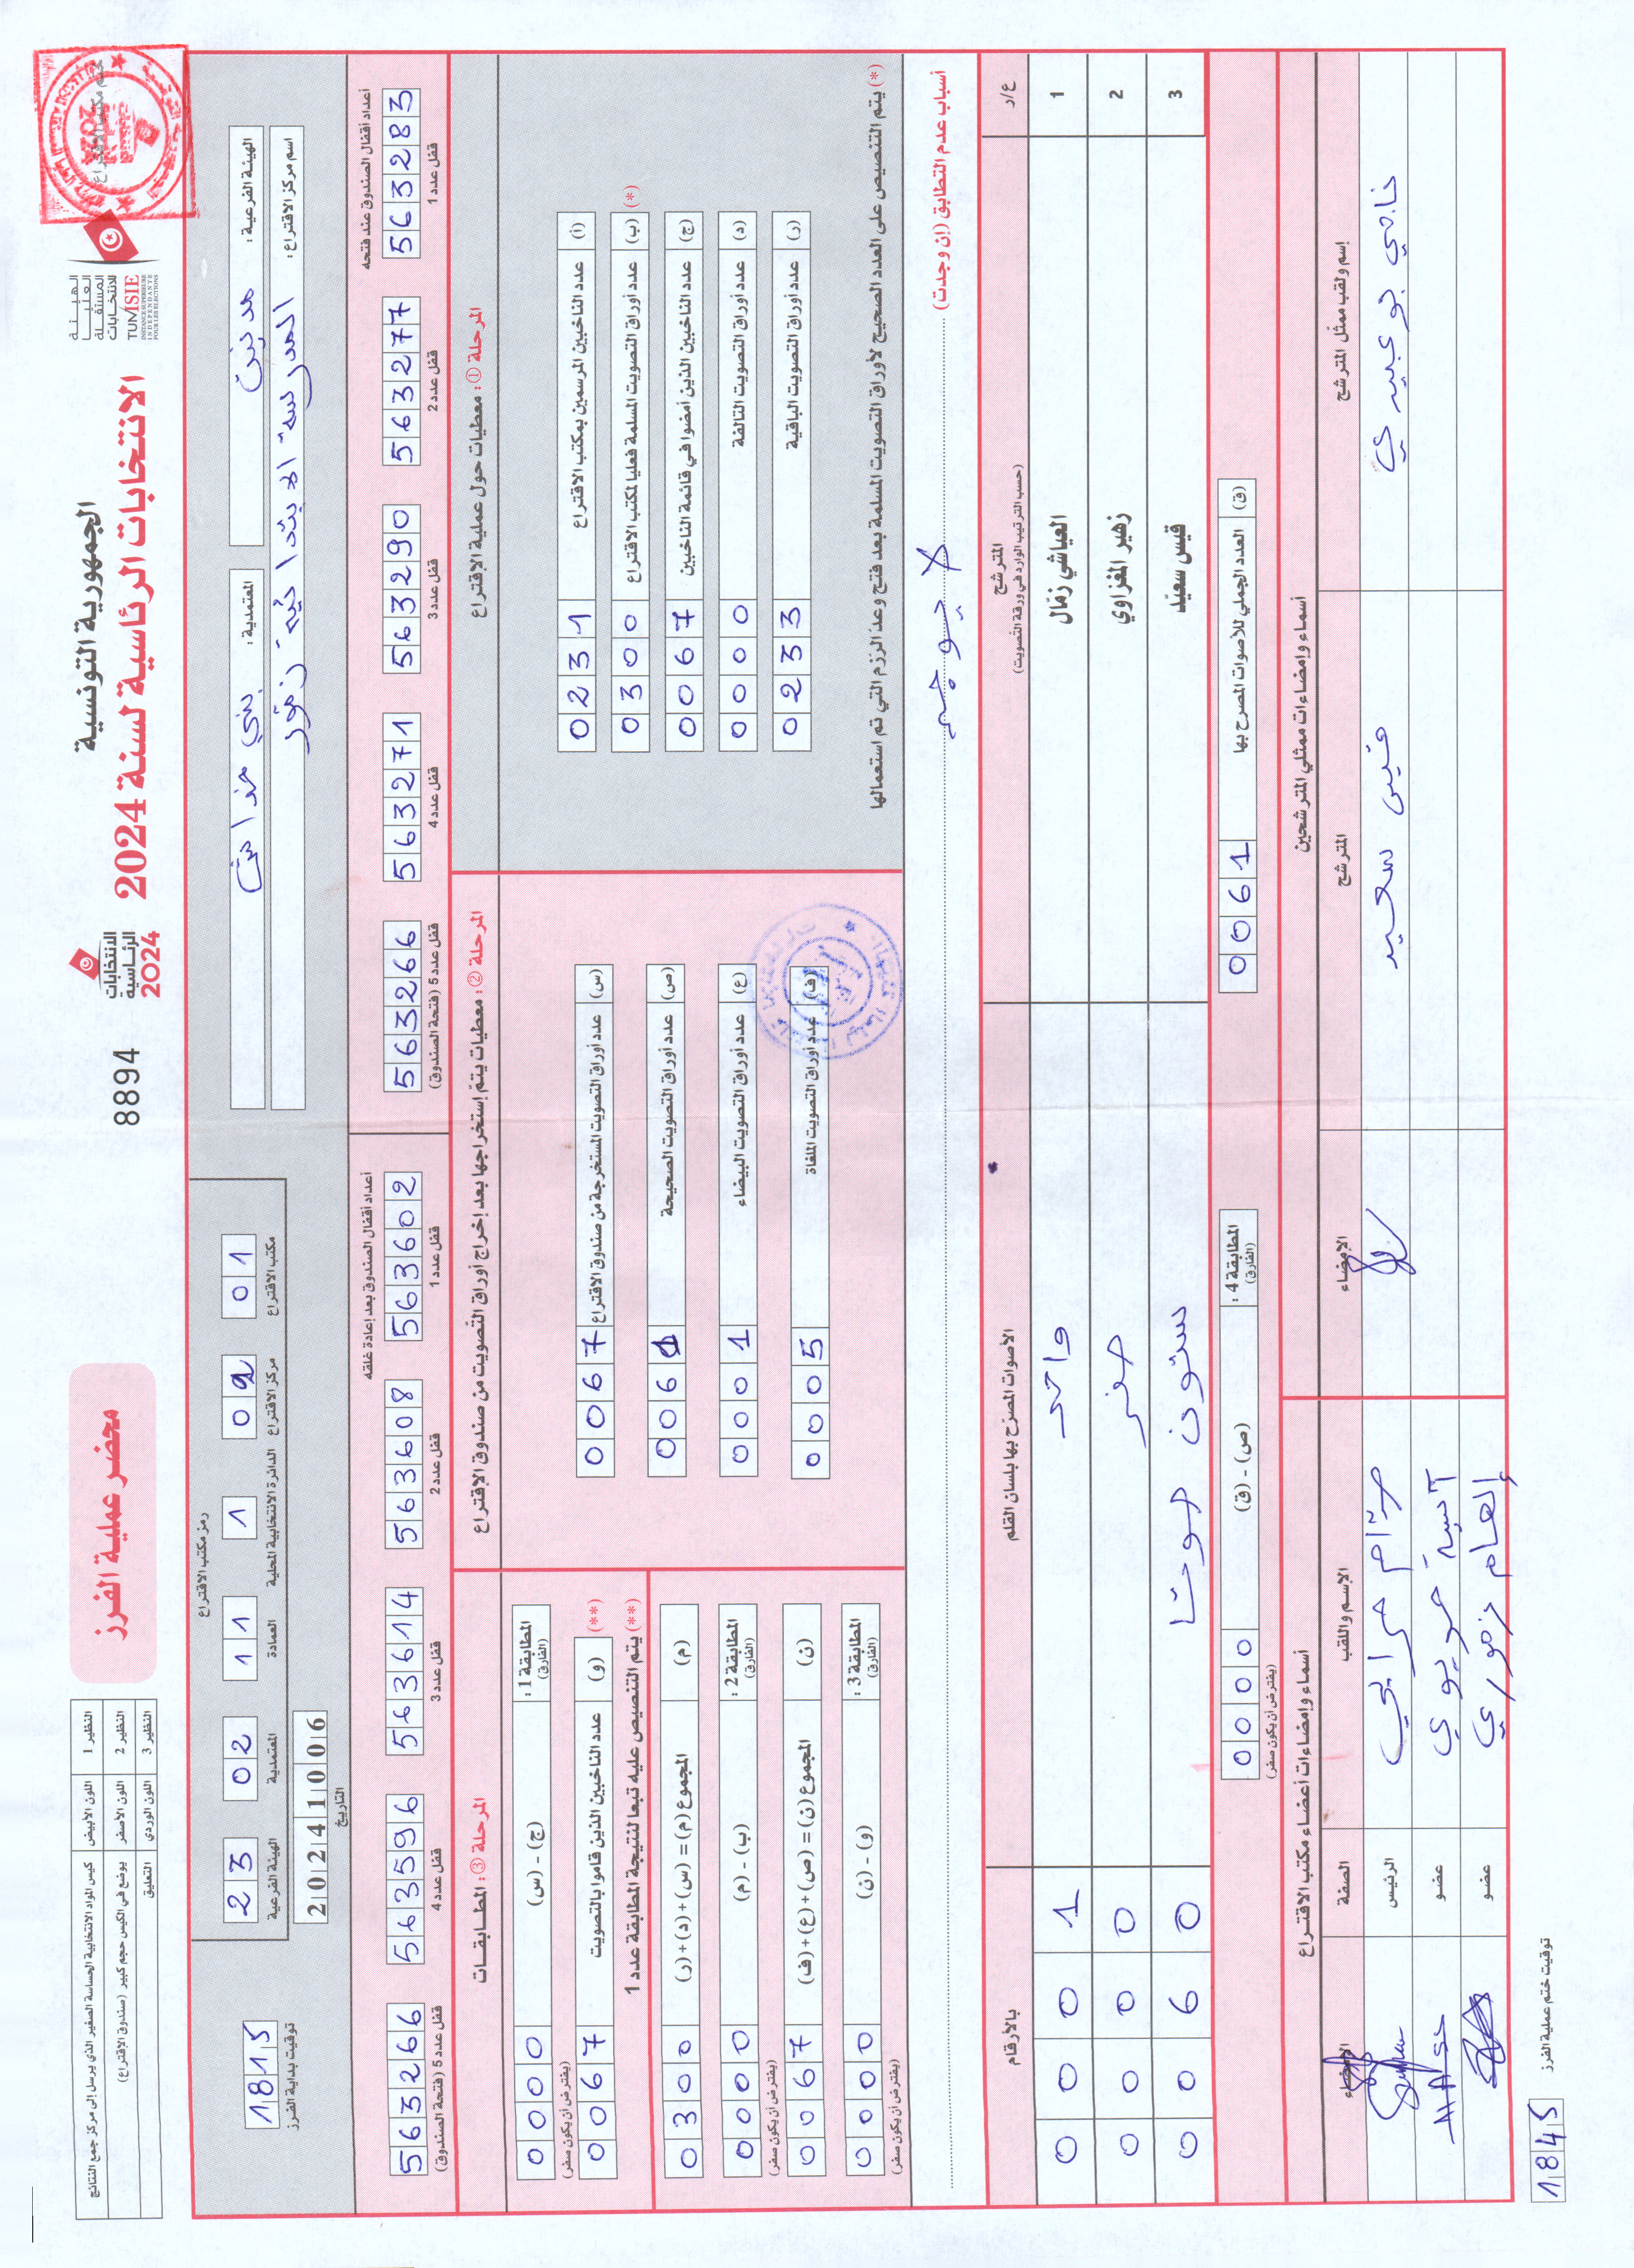 الجمهورية التونسية
الانتخابات الرئاسية لسنة 2024
الهيئة العليا المستقلة للانتخابات
TUNISIE
INSTANCE SUPERIEURE INDEPENDANTE POUR LES ELECTIONS
ختم مكتب الاقتراع
الانتخابات الرئاسية 2024
8894
محضر عملية الفرز
النظير 1 اللون الأبيض كيس المواد الانتخابية الحساسة الصغير الذي يرسل إلى مركز جمع النتائج
النظير 2 اللون الأصفر يوضع في الكيس حجم كبير (صندوق الإقتراع)
النظير 3 اللون الوردي التعليق
الهيئة الفرعية : مدنين
المعتمدية : بني خداش
اسم مركز الاقتراع : المدرسة الابتدائية زمور
رمز مكتب الاقتراع
23 الهيئة الفرعية
02 المعتمدية
11 العمادة
1 الدائرة الانتخابية المحلية
02 مركز الاقتراع
01 مكتب الاقتراع
20241006
التاريخ
1815
توقيت بداية الفرز
أعداد أقفال الصندوق عند فتحه
563283 قفل عدد 1
563277 قفل عدد 2
563290 قفل عدد 3
563271 قفل عدد 4
563266 قفل عدد 5 (فتحة الصندوق)
أعداد أقفال الصندوق بعد إعادة غلقه
563602 قفل عدد 1
563608 قفل عدد 2
563614 قفل عدد 3
563596 قفل عدد 4
563266 قفل عدد 5 (فتحة الصندوق)
المرحلة ① : معطيات حول عملية الاقتراع
(أ) عدد الناخبين المرسمين بمكتب الاقتراع 0231
(*) (ب) عدد أوراق التصويت المسلمة فعليا لمكتب الاقتراع 0300
(ج) عدد الناخبين الذين أمضوا في قائمة الناخبين 0067
(د) عدد أوراق التصويت التالفة 0000
(ر) عدد أوراق التصويت الباقية 0233
(*) يتم التنصيص على العدد الصحيح لأوراق التصويت المسلمة بعد فتح وعد الرزم التي تم استعمالها
المرحلة ② : معطيات يتم إستخراجها بعد إخراج أوراق التصويت من صندوق الإقتراع
(س) عدد أوراق التصويت المستخرجة من صندوق الاقتراع 0067
(ص) عدد أوراق التصويت الصحيحة 0061
(ع) عدد أوراق التصويت البيضاء 0001
(ف) عدد أوراق التصويت الملغاة 0005
المرحلة ③ : المطابقات
المطابقة 1 : (الفارق) (ج) - (س) 0000
(يفترض أن يكون صفر)
(**) (و) عدد الناخبين الذين قاموا بالتصويت 0067
(**) يتم التنصيص عليه تبعا لنتيجة المطابقة عدد 1
(م) المجموع (م) = (س) + (د) + (ر) 0300
المطابقة 2 : (الفارق) (ب) - (م) 0000
(يفترض أن يكون صفر)
(ن) المجموع (ن) = (ص) + (ع) + (ف) 0067
المطابقة 3 : (الفارق) (و) - (ن) 0000
(يفترض أن يكون صفر)
أسباب عدم التطابق (إن وجدت) لا يوجد
ع/د المترشح الأصوات المصرح بها بلسان القلم بالأرقام
(حسب الترتيب الوارد في ورقة التصويت)
1 العياشي زمّال واحد 0001
2 زهير المغزاوي صفر 0000
3 قيس سعيّد ستون صوتا 0060
(ق) العدد الجملي للأصوات المصرح بها 0061
المطابقة 4 : (الفارق) (ص) - (ق) 0000
(يفترض أن يكون صفر)
أسماء وإمضاءات ممثلي المترشحين
إسم ولقب ممثل المترشح المترشح الإمضاء
ناجي بوعبيدي قيس سعيد
أسماء وإمضاءات أعضاء مكتب الاقتراع
الإسم واللقب الصفة الإمضاء
مرام حرابي الرئيس
آسية حويوي عضو
إلهام زموري عضو
1845 توقيت ختم عملية الفرز